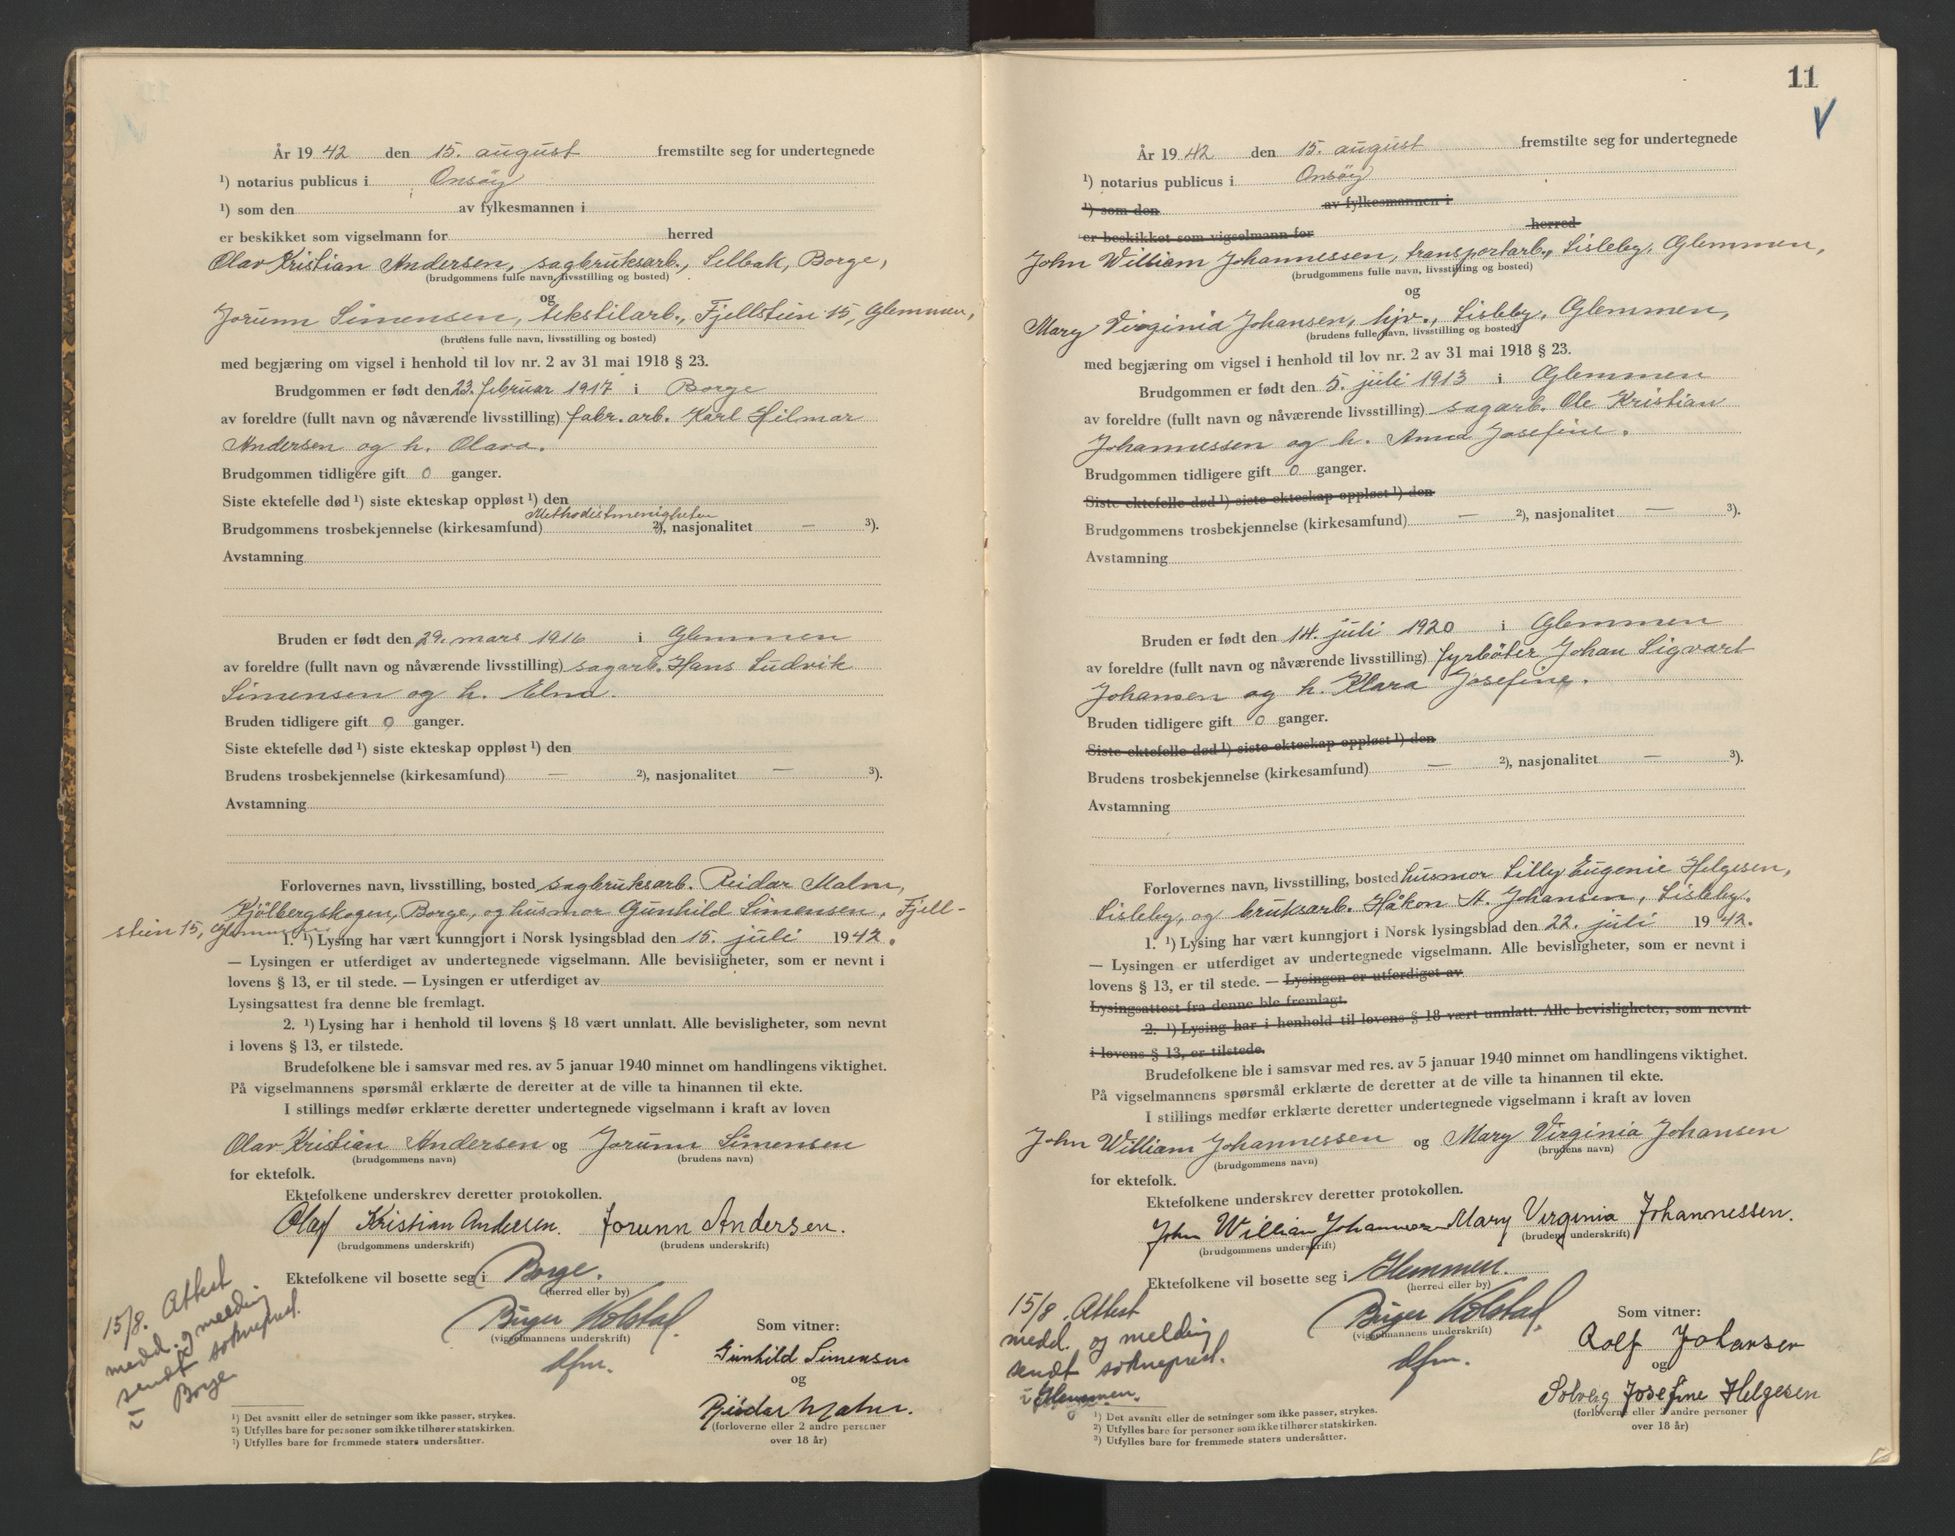 År 1942 den 15. august fremstilte seg for undertegnede
¹) notarius publicus i Onsöy
¹) som den av fylkesmannen i
er beskikket som vigselmann for herred
Olav Kristian Andersen, sagbruksarb., Selbak, Borge,
(brudgommens fulle navn, livsstilling og bosted)
og
Jorunn Simensen, tekstilarb., Fjellstien 15, Glemmen,
(brudens fulle navn, livsstilling og bosted)
med begjæring om vigsel i henhold til lov nr. 2 av 31 mai 1918 § 23.
Brudgommen er født den 23. februar 1917 i Borge
av foreldre (fullt navn og nåværende livsstilling) fabr. arb. Karl Hilmar
Andersen og h. Olava.
Brudgommen tidligere gift 0 ganger.
Siste ektefelle død ¹) siste ekteskap oppløst ¹) den
Brudgommens trosbekjennelse (kirkesamfund) Methodistmenigheten ²), nasjonalitet — ³).
Avstamning
Bruden er født den 29. mars 1916 i Glemmen
av foreldre (fullt navn og nåværende livsstilling) sagarb. Hans Ludvik
Simensen og h. Elna.
Bruden tidligere gift 0 ganger.
Siste ektefelle død ¹) siste ekteskap oppløst ¹) den
Brudens trosbekjennelse (kirkesamfund) — ²), nasjonalitet — ³).
Avstamning
Forlovernes navn, livsstilling, bosted sagbruksarb. Reidar Malm,
Kjölbergskogen, Borge, og husmor Gunhild Simensen, Fjell-
stien 15, Glemmen
1. ¹) Lysing har vært kunngjort i Norsk lysingsblad den 15. juli 1942.
— Lysingen er utferdiget av undertegnede vigselmann. Alle bevisligheter, som er nevnt i
lovens § 13, er til stede. — Lysingen er utferdiget av
Lysingsattest fra denne ble fremlagt.
2. ¹) Lysing har i henhold til lovens § 18 vært unnlatt. Alle bevisligheter, som nevnt
i lovens § 13, er tilstede.
Brudefolkene ble i samsvar med res. av 5 januar 1940 minnet om handlingens viktighet.
På vigselmannens spørsmål erklærte de deretter at de ville ta hinannen til ekte.
I stillings medfør erklærte deretter undertegnede vigselmann i kraft av loven
Olav Kristian Andersen og Jorunn Simensen
(brudgommens navn) (brudens navn)
for ektefolk.
Ektefolkene underskrev deretter protokollen.
Olaf Kristian Andersen. Jorunn Andersen.
(brudgommens underskrift) (brudens underskrift)
Ektefolkene vil bosette seg i Borge.
(herred eller by)
Birger Kolstad.
(vigselmannens underskrift)
dfm.
Som vitner:
Gunhild Simensen
og
Reidar Malm.
(forloverne eller 2 andre personer
over 18 år)
15/8. Attest
medd. og melding
sendt sokneprest.
i Borge
¹) Det avsnitt eller de setninger som ikke passer, strykes.
²) Utfylles bare for personer som ikke tilhører statskirken.
³) Utfylles bare for fremmede staters undersåtter.
11
År 1942 den 15. august fremstilte seg for undertegnede
¹) notarius publicus i Onsöy
¹) som den av fylkesmannen i
er beskikket som vigselmann for herred
John William Johannessen, transportarb., Lisleby, Glemmen,
(brudgommens fulle navn, livsstilling og bosted)
og
Mary Virginia Johansen, hjv., Lisleby, Glemmen,
(brudens fulle navn, livsstilling og bosted)
med begjæring om vigsel i henhold til lov nr. 2 av 31 mai 1918 § 23.
Brudgommen er født den 5. juli 1913 i Glemmen
av foreldre (fullt navn og nåværende livsstilling) sagarb. Ole Kristian
Johannessen og h. Anna Josefine.
Brudgommen tidligere gift 0 ganger.
Siste ektefelle død ¹) siste ekteskap oppløst ¹) den
Brudgommens trosbekjennelse (kirkesamfund) — ²), nasjonalitet — ³).
Avstamning
Bruden er født den 14. juli 1920 i Glemmen
av foreldre (fullt navn og nåværende livsstilling) fyrböter Johan Sigvart
Johansen og h. Klara Josefine.
Bruden tidligere gift 0 ganger.
Siste ektefelle død ¹) siste ekteskap oppløst ¹) den
Brudens trosbekjennelse (kirkesamfund) — ²), nasjonalitet — ³).
Avstamning
Forlovernes navn, livsstilling, bosted husmor Lilly Eugenie Helgesen,
Lisleby, og bruksarb. Håkon M. Johansen, Lisleby.
1. ¹) Lysing har vært kunngjort i Norsk lysingsblad den 22. juli 1942.
— Lysingen er utferdiget av undertegnede vigselmann. Alle bevisligheter, som er nevnt i
lovens § 13, er til stede. — Lysingen er utferdiget av
Lysingsattest fra denne ble fremlagt.
2. ¹) Lysing har i henhold til lovens § 18 vært unnlatt. Alle bevisligheter, som nevnt
i lovens § 13, er tilstede.
Brudefolkene ble i samsvar med res. av 5 januar 1940 minnet om handlingens viktighet.
På vigselmannens spørsmål erklærte de deretter at de ville ta hinannen til ekte.
I stillings medfør erklærte deretter undertegnede vigselmann i kraft av loven
John William Johannessen og Mary Virginia Johansen
(brudgommens navn) (brudens navn)
for ektefolk.
Ektefolkene underskrev deretter protokollen.
John William Johannessen Mary Virginia Johannessen.
(brudgommens underskrift) (brudens underskrift)
Ektefolkene vil bosette seg i Glemmen.
(herred eller by)
Birger Kolstad.
(vigselmannens underskrift)
dfm.
Som vitner:
Rolf Johansen
og
Solveig Josefine Helgesen
(forloverne eller 2 andre personer
over 18 år)
15/8. Attest
medd. og melding
sendt sokneprest.
i Glemmen.
¹) Det avsnitt eller de setninger som ikke passer, strykes.
²) Utfylles bare for personer som ikke tilhører statskirken.
³) Utfylles bare for fremmede staters undersåtter.